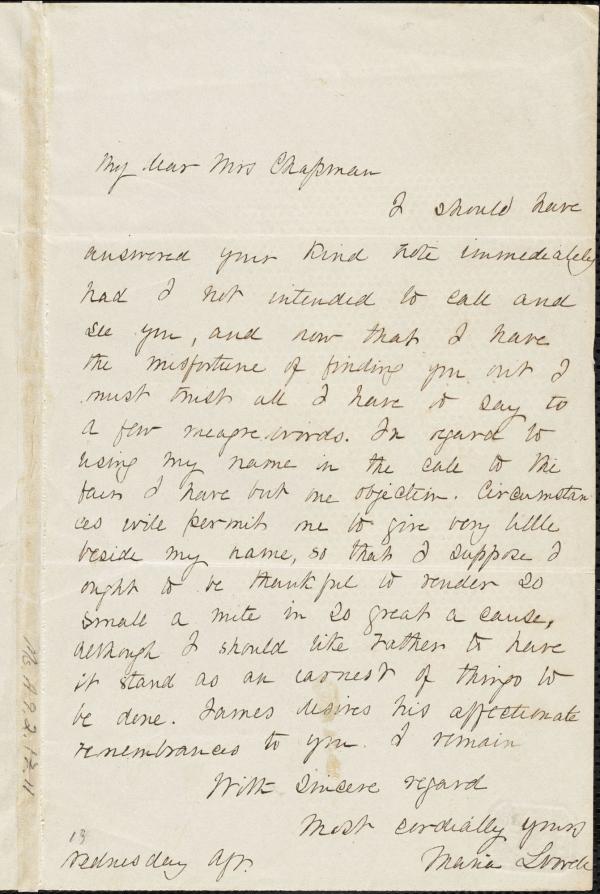 My dear Mrs Chapman
I should have
answered your kind note immediately
had I not intended to call and
see you, and now that I have
the misfortune of finding you out I
must trust all I have to say to
a few meagre words. In regard to
using my name in the call to the
fair I have but one objection. Circumstan
ces will permit me to give very little
beside my name, so that I suppose I
ought to be thankful to render so
small a mite in so great a cause,
although I should like rather to have
it stand as an earnest of things to
be done. James desires his affectionate
remembrances to you. I remain
With sincere regard
Most cordially yours
Maria
13
Wednesday Afr.